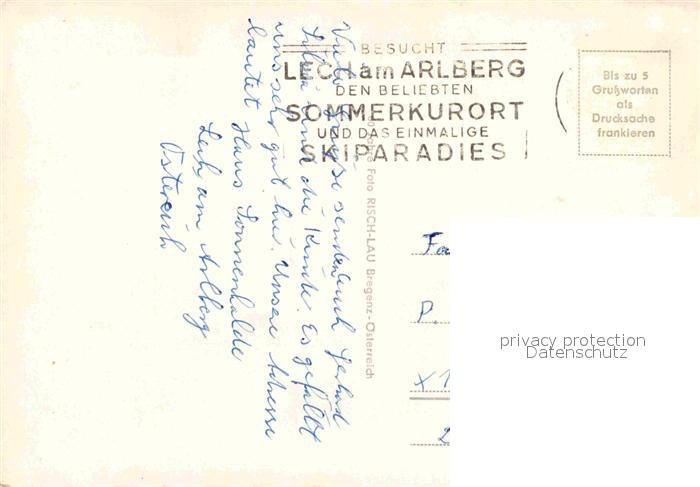 BESUCHT
LECH am ARLBERG
DEN BELIEBTEN
SOMMERKURORT
UND DAS EINMALIGE
SKIPARADIES
Bis zu 5
Grußworten
als
Drucksache
frankieren
Viele Grüße senden euch Gerhard
und die Kinder. Es gefällt
uns sehr gut hier. Unsere Adresse
lautet Haus Sonnenhalde
Lech am Arlberg
Österreich
Foto RISCH-LAU Bregenz-Österreich
Fa
P.
X1
2
privacy protection
Datenschutz